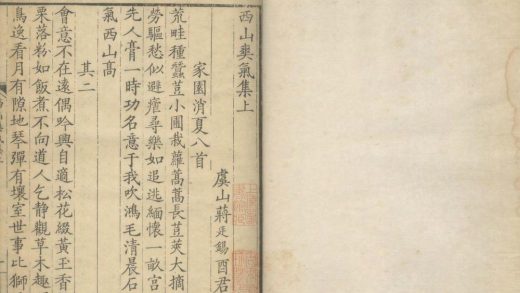 西山爽氣集上
虞山蔣廷錫酉君
家園消夏八首
荒畦種蠶荳小圃栽蘿蒿蒿長荳莢大摘
勞驅愁似避瘧尋樂如追逃緬懷一畝宮
先人膏一時功名意于我吹鴻毛清晨石
氣西山高
其二
會意不在遠偶吟興自適松花綴黃玉香
栗落粉如飯煮不向道人乞靜觀草木趣
鳥逸看月有隙地琴彈有壞室世事比獅